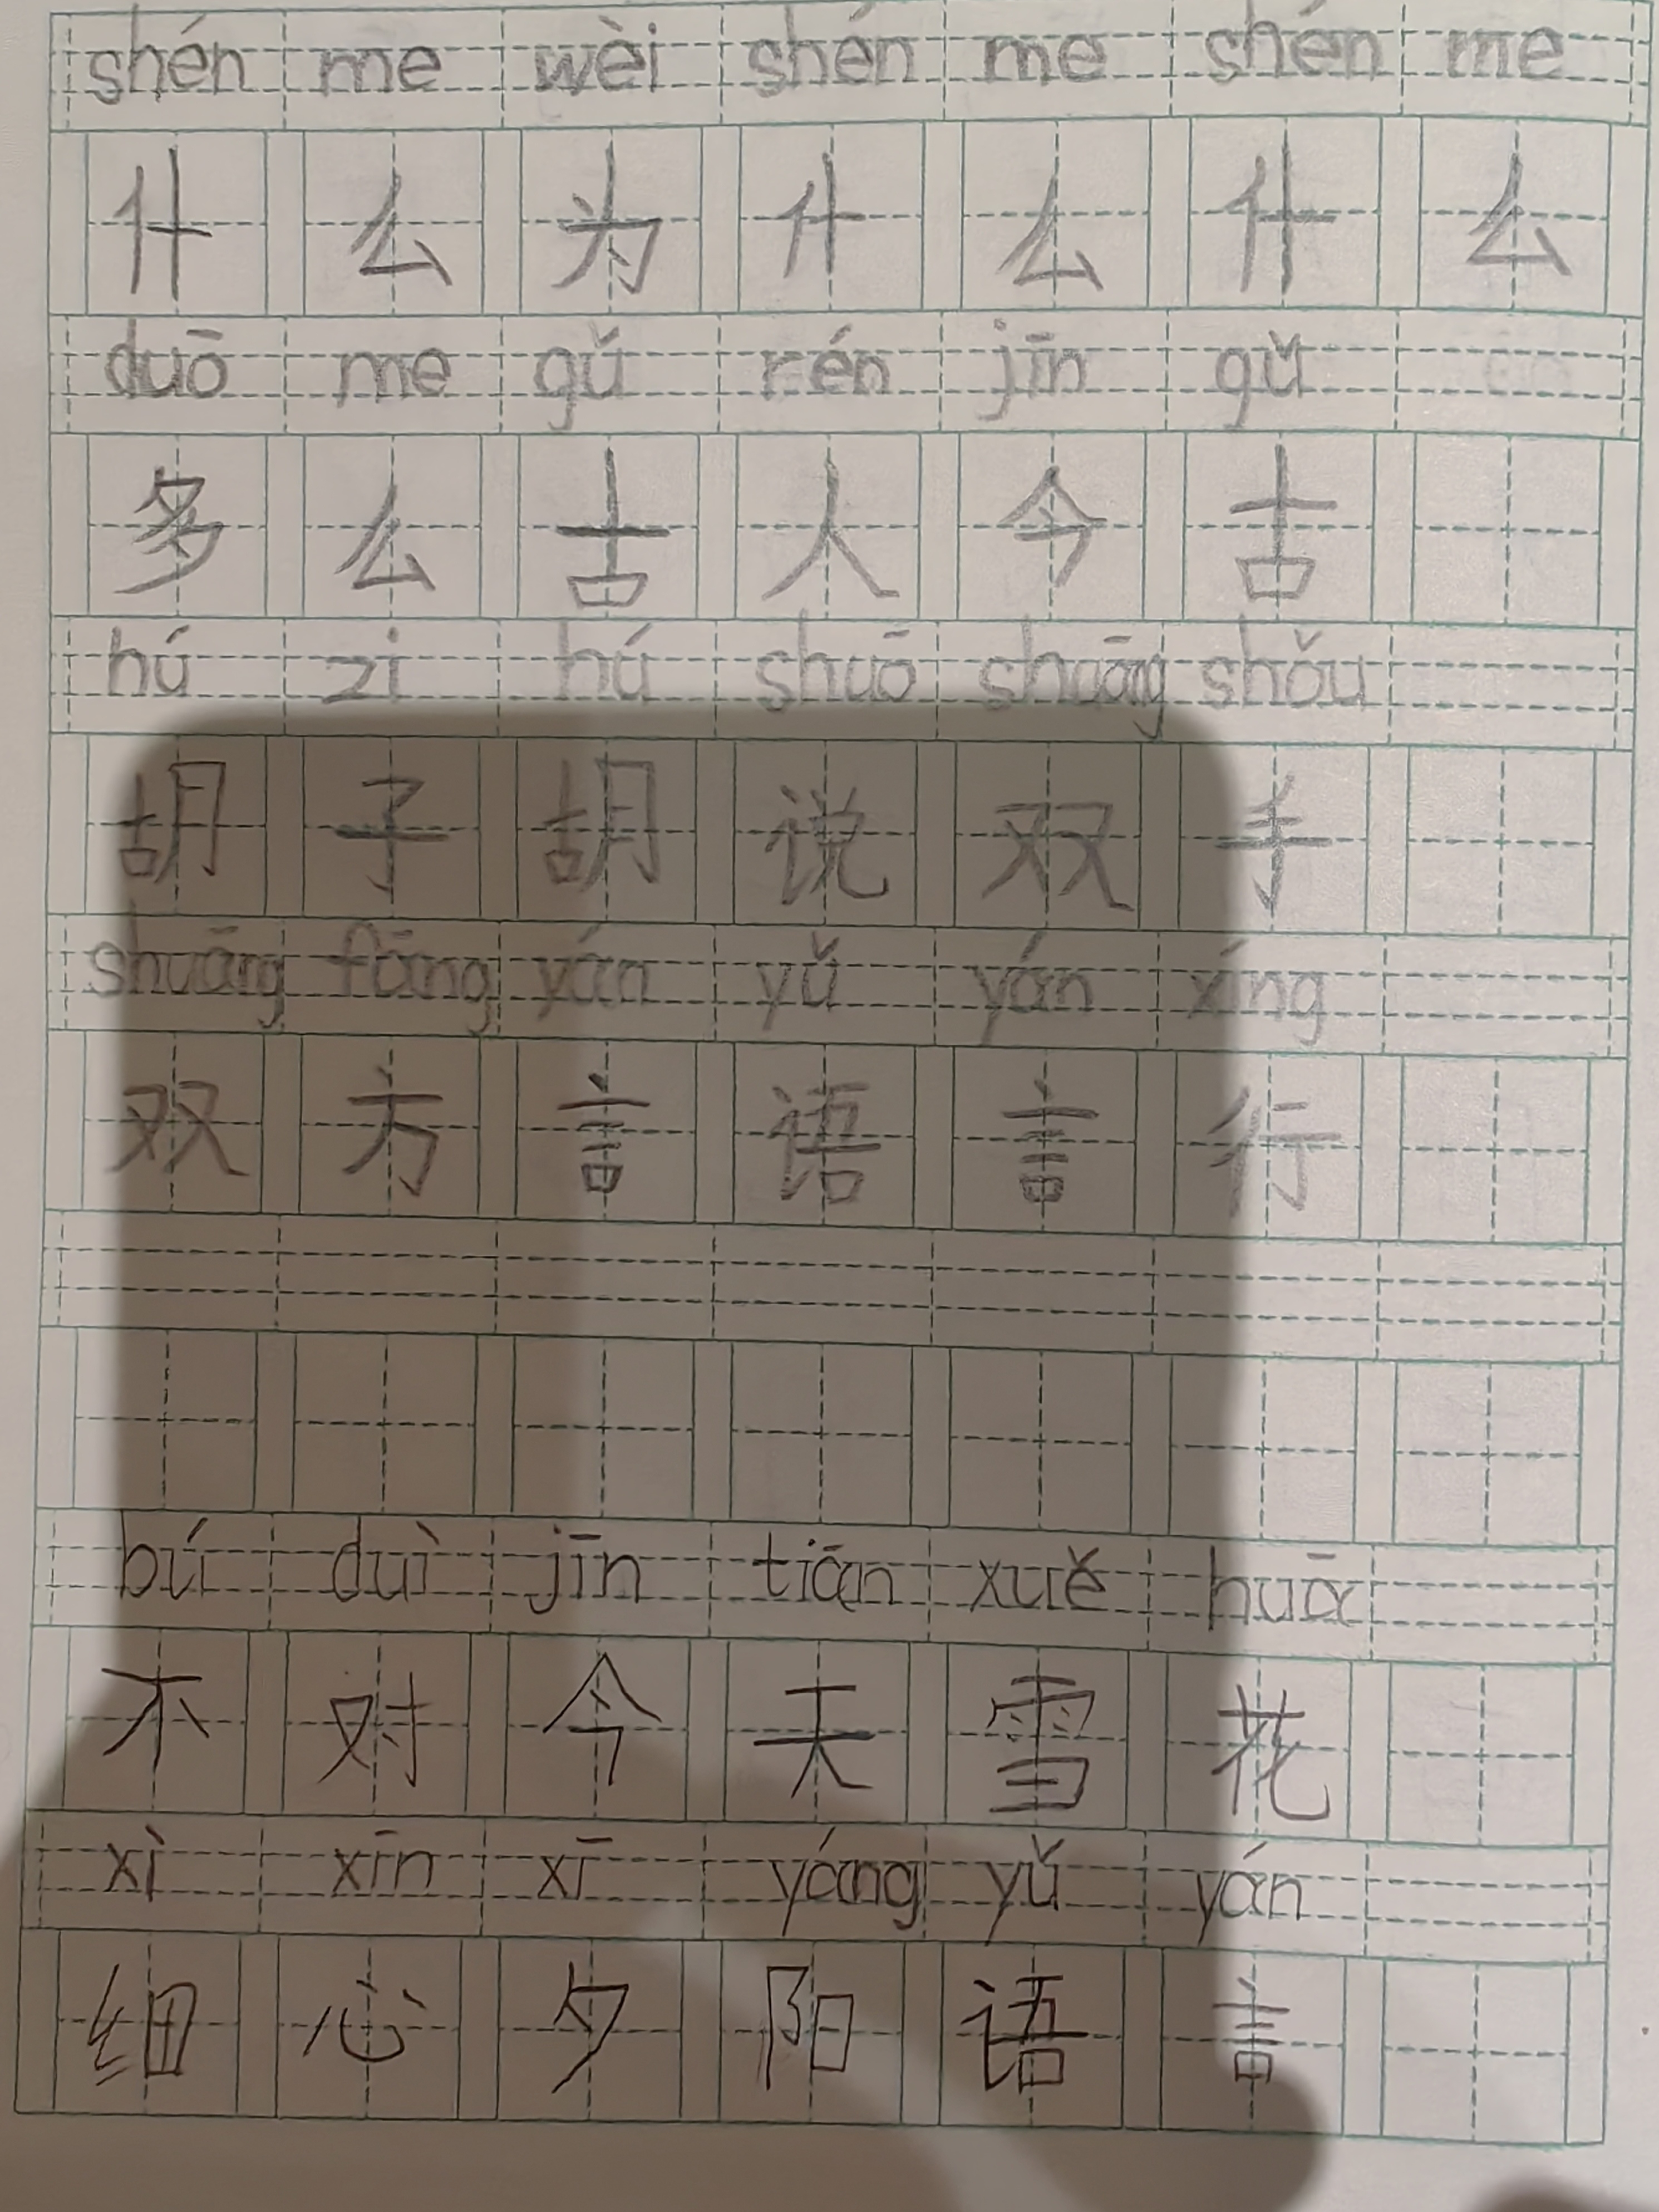 shén me wèi shén me shén me
什么为什么什么
duō me gǔ rén jīn gǔ
多么古人今古
hú zi hú shuō shuāng shǒu
胡子胡说双手
shuāng fāng yán yǔ yán xíng
双方言语言行
bú duì jīn tiān xuě huā
不对今天雪花
xì xīn xī yáng yǔ yán
细心夕阳语言